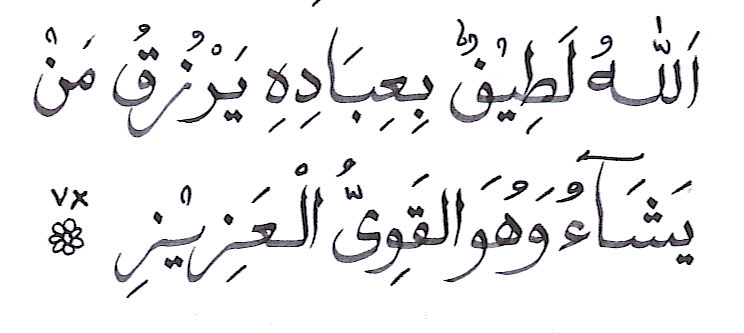 اَللّٰهُ لَطِيْفٌ بِعِبَادِهِ يَرْزُقُ مَنْ
يَشَآءُ وَهُوَ القَوِىُّ الْعَزِيْزِ ۷×